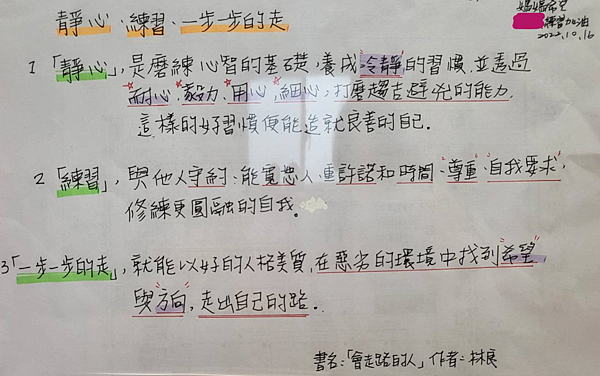 靜心、練習、一步一步的走
媽媽希望
練習加油
2022.10.16
1「靜心」,是磨練心智的基礎,養成冷靜的習慣.並透過
耐心、毅力、用心、細心,打磨趨吉避兇的能力.
這樣的好習慣便能造就良善的自己.
2「練習」,與他人守約:能寬恕人、重許諾和時間、尊重、自我要求,
修練更圓融的自我。
3「一步一步的走」,就能以好的人格美質,在惡劣的環境中找到希望
與方向,走出自己的路.
書名:「會走路的人」作者:林良